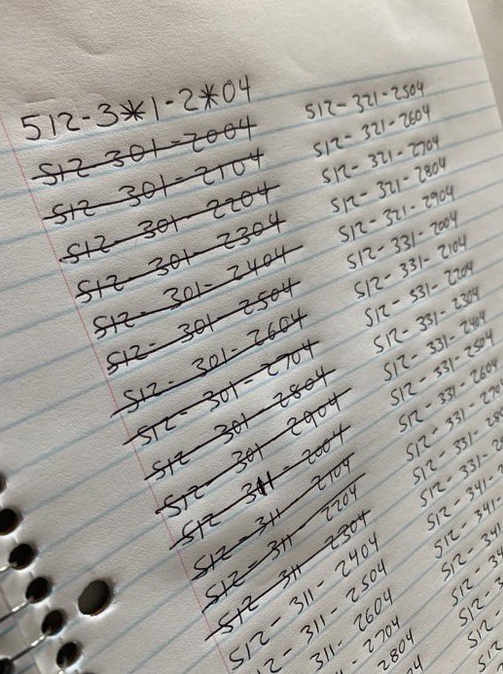 512-3*1-2*04
512-301-2004
512-301-2104
512-301-2204
512-301-2304
512-301-2404
512-301-2504
512-301-2604
512-301-2704
512-301-2804
512-301-2904
512-311-2004
512-311-2104
512-311-2204
512-311-2304
512-311-2404
512-311-2504
311-2604
2704
2804
512-321-2504
512-321-2604
512-321-2704
512-321-2804
512-321-2904
512-331-2004
512-331-2104
512-531-2204
512-331-2304
512-331-2404
512-331-2504
512-331-2604
512-331-27
512-331-28
512-331-2
512-341-
512-341
512-34
512-3
512